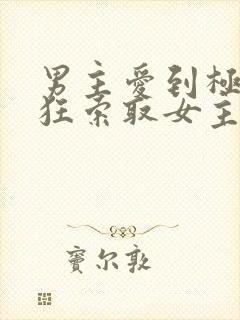 男主愛到極
狂索取女主
寶尔敦